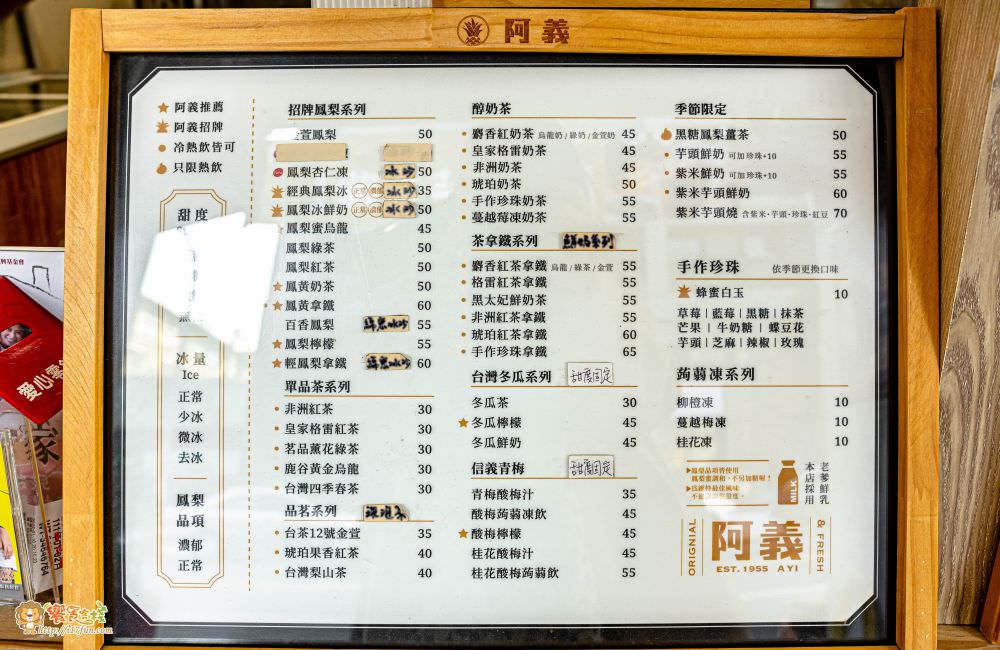 阿義
阿義推薦
阿義招牌
冷熱飲皆可
只限熱飲
甜度
冰量
Ice
正常
少冰
微冰
去冰
鳳梨
品項
濃郁
正常
招牌鳳梨系列
萱鳳梨 50
鳳梨杏仁凍 冰沙 50
經典鳳梨冰 正常 濃郁 冰沙 35
鳳梨冰鮮奶 正常 濃郁 冰沙 50
鳳梨蜜烏龍 45
鳳梨綠茶 50
鳳梨紅茶 50
鳳黃奶茶 50
鳳黃拿鐵 60
百香鳳梨 55
鳳梨檸檬 55
輕鳳梨拿鐵 60
單品茶系列
非洲紅茶 30
皇家格雷紅茶 30
茗品薰花綠茶 30
鹿谷黃金烏龍 30
台灣四季春茶 30
品茗系列
台茶12號金萱 35
琥珀果香紅茶 40
台灣梨山茶 40
醇奶茶
麝香紅奶茶 烏龍奶/綠奶/金萱奶 45
皇家格雷奶茶 45
非洲奶茶 45
琥珀奶茶 50
手作珍珠奶茶 55
蔓越莓凍奶茶 55
茶拿鐵系列 鮮奶系列
麝香紅茶拿鐵 烏龍/綠茶/金萱 55
格雷紅茶拿鐵 55
黑太妃鮮奶茶 55
非洲紅茶拿鐵 55
琥珀紅茶拿鐵 60
手作珍珠拿鐵 65
台灣冬瓜系列 甜度固定
冬瓜茶 30
冬瓜檸檬 45
冬瓜鮮奶 45
信義青梅 甜度固定
青梅酸梅汁 35
酸梅蒟蒻凍飲 45
酸梅檸檬 45
桂花酸梅汁 45
桂花酸梅蒟蒻飲 55
季節限定
黑糖鳳梨薑茶 50
芋頭鮮奶 可加珍珠+10 55
紫米鮮奶 可加珍珠+10 55
紫米芋頭鮮奶 60
紫米芋頭燒 含紫米·芋頭·珍珠·紅豆 70
手作珍珠 依季節更換口味
蜂蜜白玉 10
草莓|藍莓|黑糖|抹茶
芒果|牛奶糖|蝶豆花
芋頭|芝麻|辣椒|玫瑰
蒟蒻凍系列
柳橙凍 10
蔓越梅凍 10
桂花凍 10
▶鳳梨品項皆使用
鳳梨蜜調和，不另加糖喔！
▶為維持最佳風味
MILK
老爹鮮乳
本店採用
ORIGNIAL
阿義
& FRESH
EST. 1955 AYI
愛心零
家
http://i17fun.com/